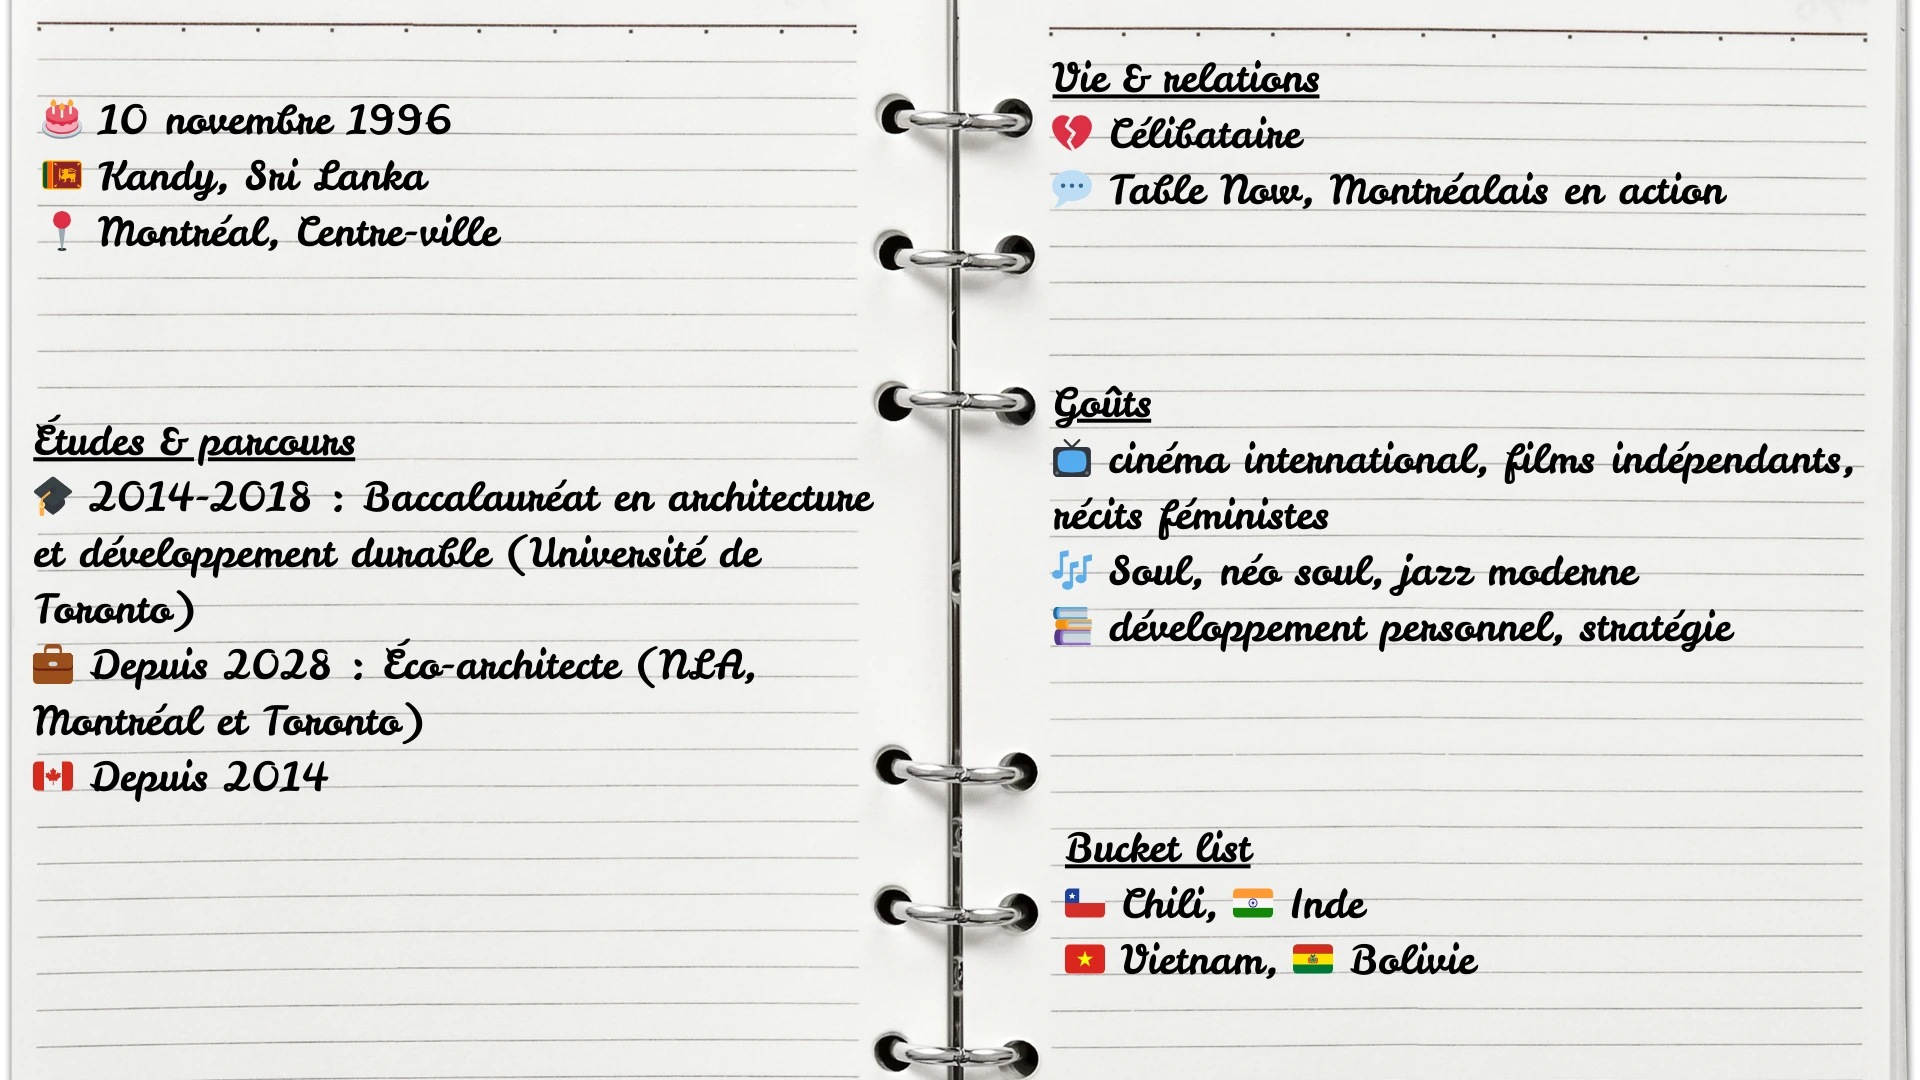 🎂 10 novembre 1996
🇱🇰 Kandy, Sri Lanka
📍 Montréal, Centre-ville
Études & parcours
🎓 2014-2018 : Baccalauréat en architecture
et développement durable (Université de
Toronto)
💼 Depuis 2028 : Éco-architecte (NLA,
Montréal et Toronto)
🇨🇦 Depuis 2014
Vie & relations
💔 Célibataire
💬 Table Now, Montréalais en action
Goûts
📺 cinéma international, films indépendants,
récits féministes
🎶 Soul, néo soul, jazz moderne
📚 développement personnel, stratégie
Bucket list
🇨🇱 Chili, 🇮🇳 Inde
🇻🇳 Vietnam, 🇧🇴 Bolivie